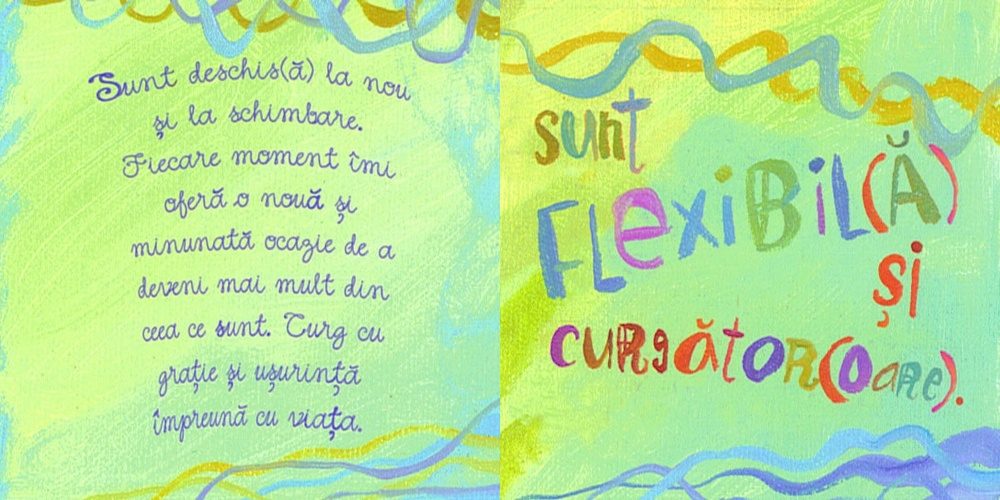 Sunt deschis(ă) la nou
și la schimbare.
Fiecare moment îmi
oferă o nouă și
minunată ocazie de a
deveni mai mult din
ceea ce sunt. Curg cu
grație și ușurință
împreună cu viața.
sunt
FLexiBiL(Ă)
și
CURgătOR(Oare).